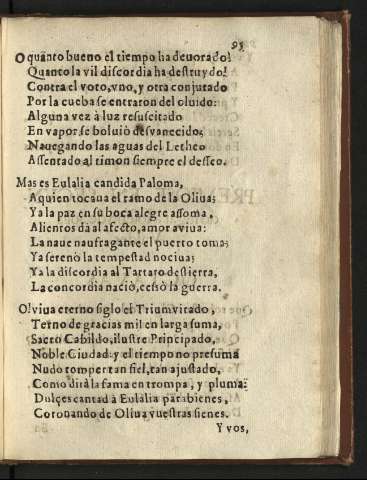 95
O quanto bueno el tiempo ha deuorado!
Quanto la vil discordia ha destruydo!
Contra el voto, vno, y otra conjutado
Por la cueba se entraron del oluido:
Alguna vez à luz resuscitado
En vapor se boluiò desvanecido;
Nauegando las aguas del Letheo
Assentado al timon siempre el desseo.
Mas es Eulalia candida Paloma,
A quien tocaua el ramo de la Oliua;
Ya la paz en su boca alegre assoma,
Alientos dà al afecto, amor aviua:
La naue naufragante el puerto toma;
Ya serenò la tempestad nociua;
Ya la discordia al Tartaro destierra,
La concordia naciò, cessò la guerra.
O! viua eterno siglo el Triumvirado,
Terno de gracias mil en larga suma,
Sacro Cabildo, ilustre Principado,
Noble Ciudad: y el tiempo no presuma
Nudo romper tan fiel, tan ajustado,
Como dirà la fama en trompa, y pluma:
Dulçes cantad à Eulalia parabienes,
Coronando de Oliua vuestras sienes.
Y vos,